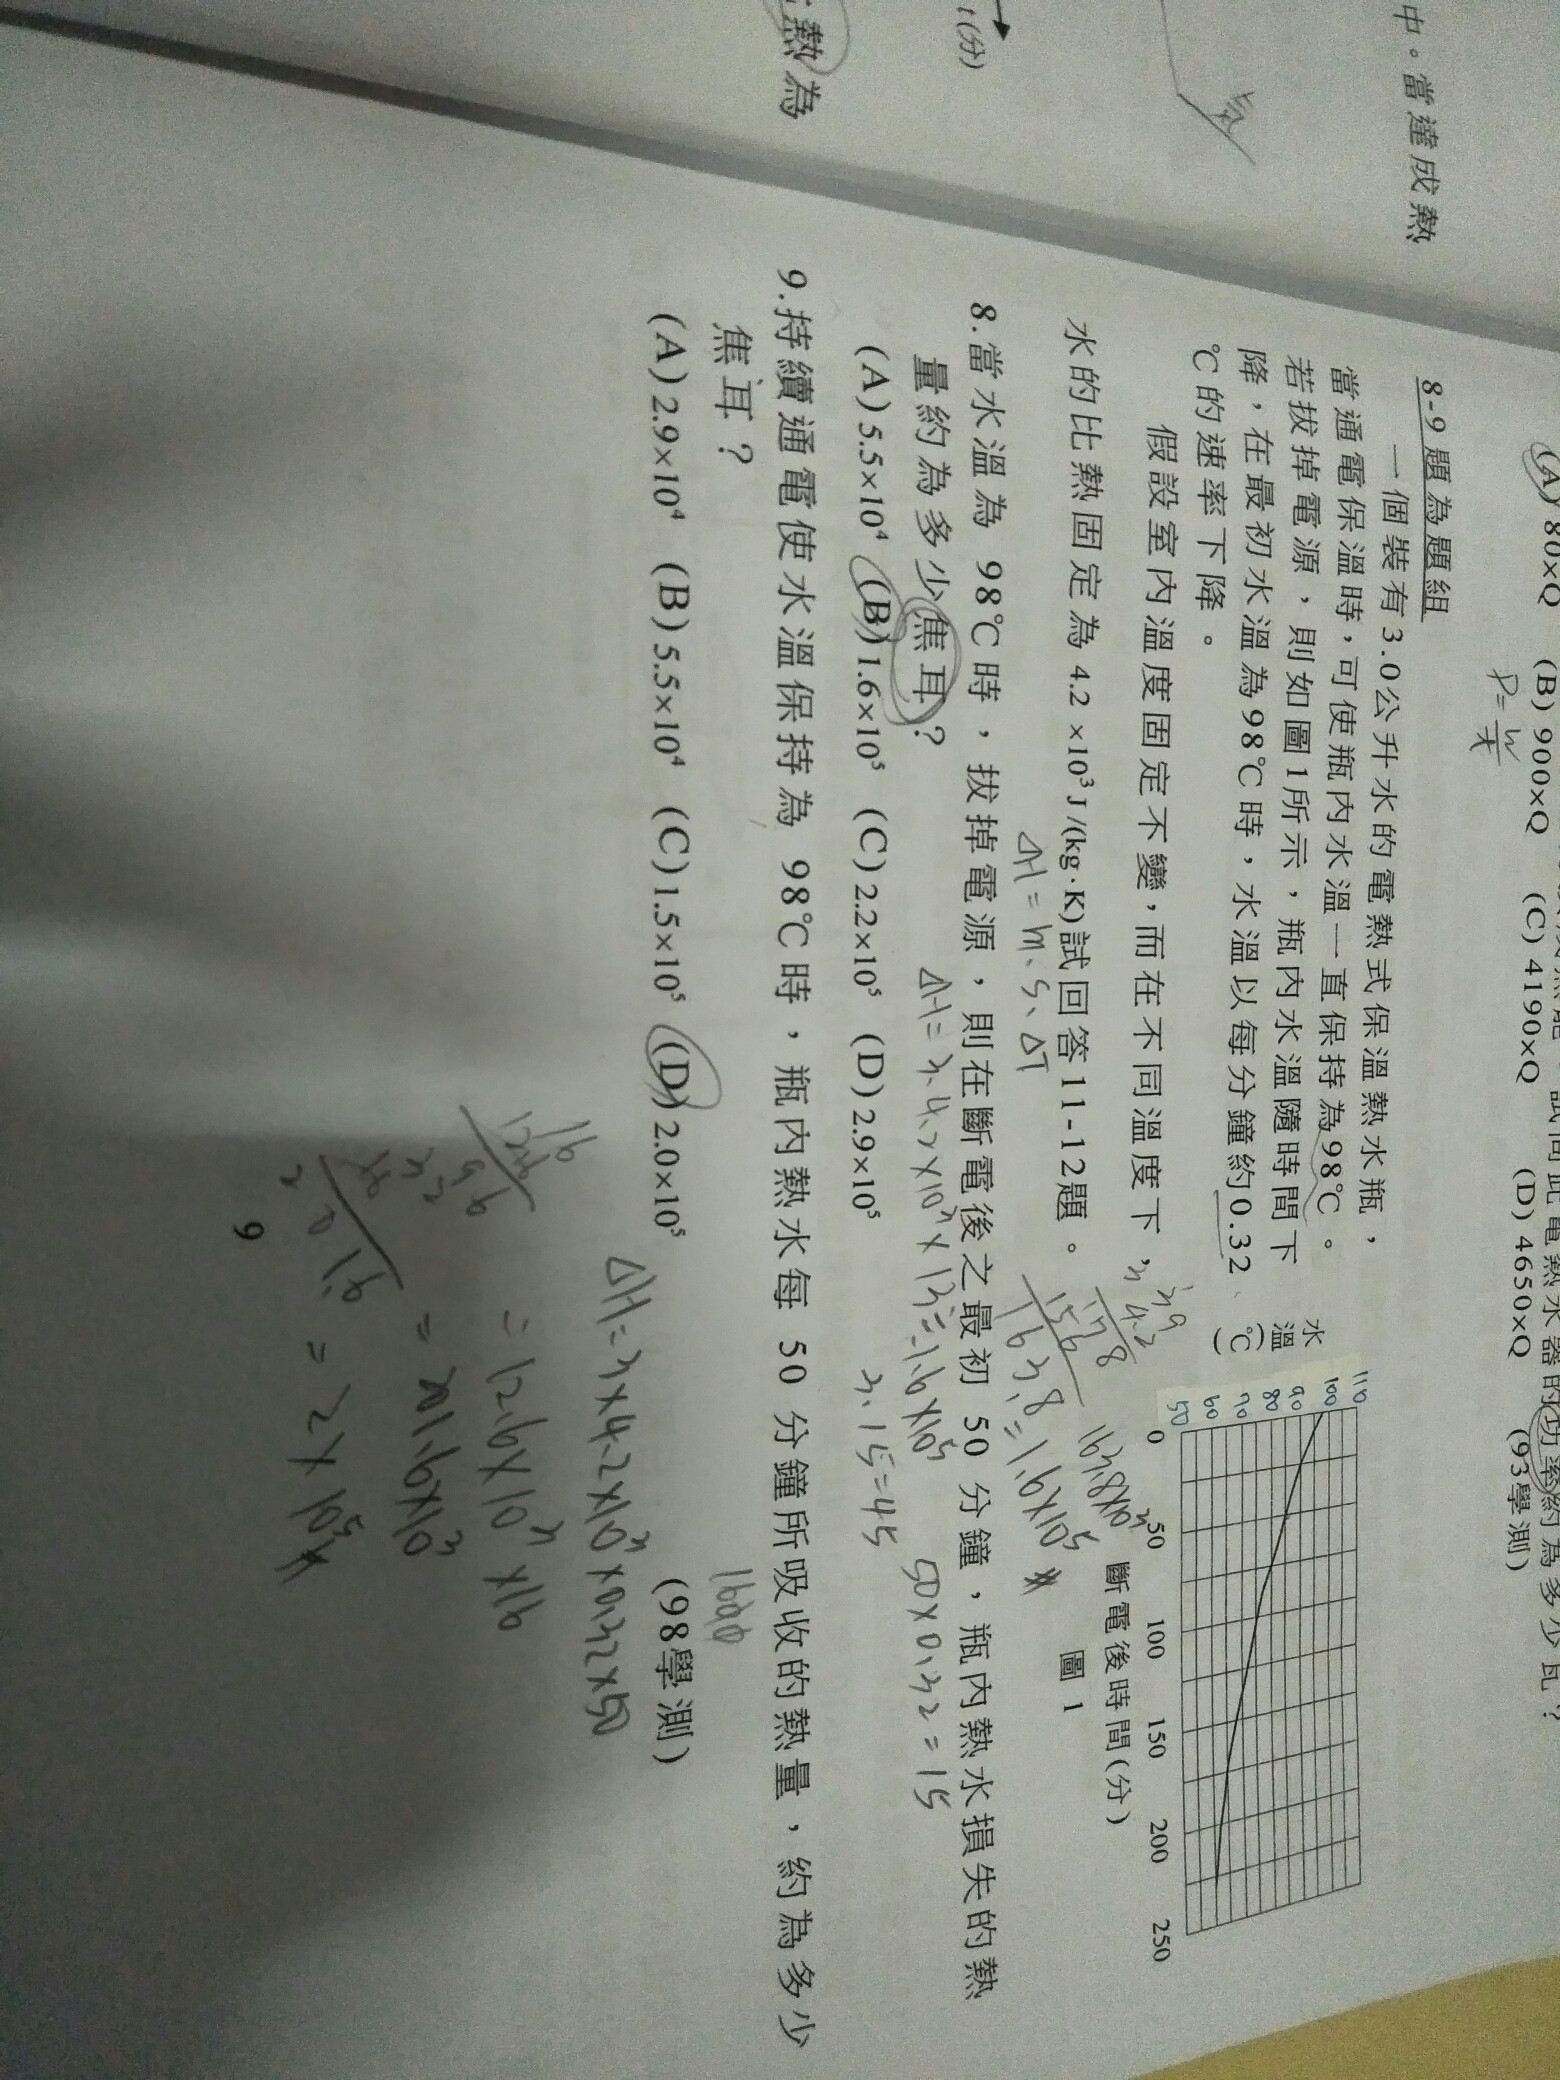 中。當達成熱
t(分)
氣
熱為
(A) 80×Q (B) 900×Q (C) 4190×Q (D) 4650×Q (93學測)
P=W/t
8-9 題為題組
一個裝有3.0公升水的電熱式保溫熱水瓶，
當通電保溫時，可使瓶內水溫一直保持為98℃。
若拔掉電源，則如圖1所示，瓶內水溫隨時間下
降，在最初水溫為98℃時，水溫以每分鐘約0.32
℃的速率下降。
假設室內溫度固定不變，而在不同溫度下，
水的比熱固定為 4.2 ×10³J/(kg·K)試回答11-12題。
水溫(℃)
110
100
90
80
70
60
50
0 50 100 150 200 250
斷電後時間(分)
圖 1
ΔH=m.s.ΔT
3.9
4.2
78
156
163.8
163.8×10³
=1.6×10⁵
8.當水溫為 98℃時，拔掉電源，則在斷電後之最初 50 分鐘，瓶內熱水損失的熱
量約為多少焦耳？
ΔH=3.4.2×10³×13=1.6×10⁵
50×0.32=15
3.15=45
(A)5.5×10⁴ (B)1.6×10⁵ (C)2.2×10⁵ (D)2.9×10⁵
9.持續通電使水溫保持為 98℃時，瓶內熱水每 50 分鐘所吸收的熱量，約為多少
焦耳？
(A)2.9×10⁴ (B)5.5×10⁴ (C)1.5×10⁵ (D)2.0×10⁵ (98學測)
ΔH=3×4.2×10³×0.32×50
=12.6×10³×16
=201.6×10³
=2×10⁵
9